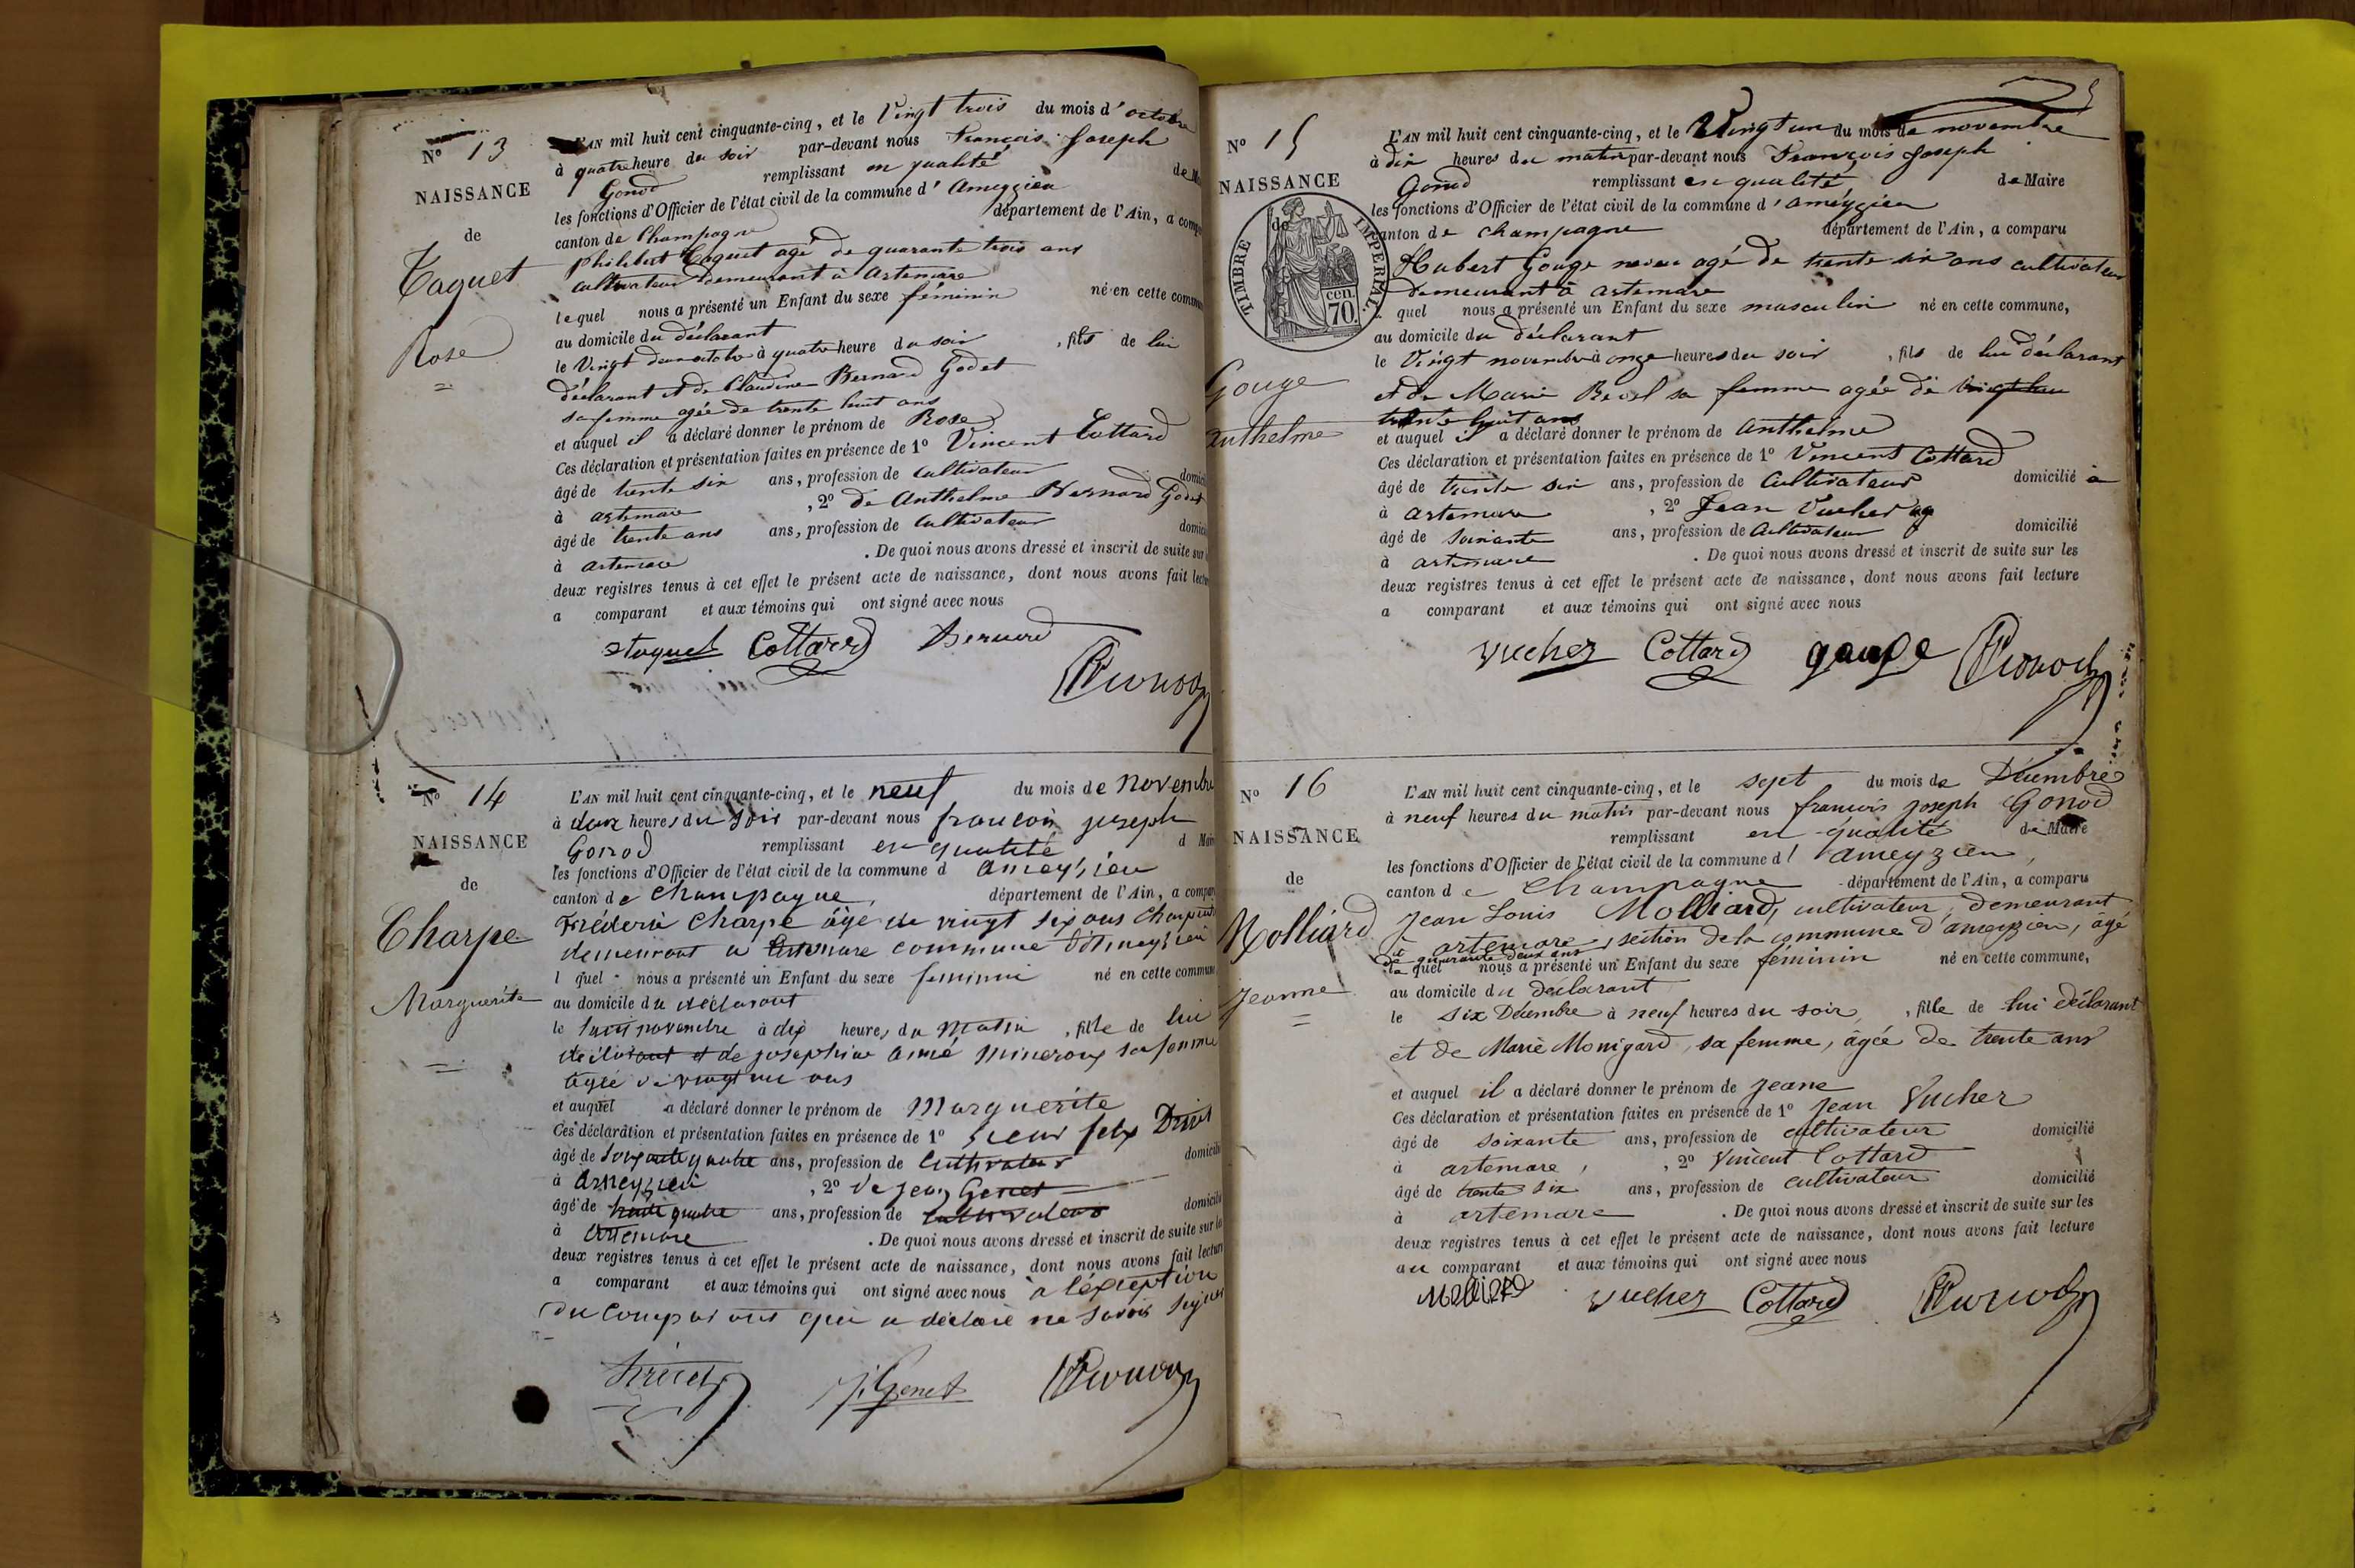 N° 13
NAISSANCE
de
Taquet
Rose
L'AN mil huit cent cinquante-cinq, et le Vingt trois du mois d'octobre
à quatre heure du soir par-devant nous François Joseph
Gonod remplissant en qualité de
les fonctions d'Officier de l'état civil de la commune d'Ameyzieu
canton de Champagne département de l'Ain, a
Philibert Taquet agé de quarante trois ans
cultivateur demeurant à Artemare
lequel nous a présenté un Enfant du sexe féminin né en cette
au domicile du déclarant
le Vingt octobre à quatre heure du soir , fils de lui
déclarant et de Claudine Bernard Godet
sa femme agée de trente huit ans
et auquel il a déclaré donner le prénom de Rose
Ces déclaration et présentation faites en présence de 1° Vincent Cottard
âgé de trente six ans, profession de cultivateur
à artemare , 2° de Anthelme Bernard Godet
âgé de trente ans ans, profession de cultivateur
à artemare . De quoi nous avons dressé et inscrit de suite sur
deux registres tenus à cet effet le présent acte de naissance, dont nous avons fait
a comparant et aux témoins qui ont signé avec nous
Taquet Cottard Bernard
Gonod
N° 14
NAISSANCE
de
Charpe
Marguerite
L'AN mil huit cent cinquante-cinq, et le neuf du mois de novembre
à deux heures du soir par-devant nous françois joseph
Gonod remplissant en qualité d
les fonctions d'Officier de l'état civil de la commune d ameyzieu
canton de champagne, département de l'Ain, a
Fréderic Charpe âge de vingt six ans
demeurant a Artemare commune d'ameyzieu
l quel nous a présenté un Enfant du sexe feminin né en cette commune
au domicile du déclarant
le huit novembre à dix heures du matin , fille de lui
déclarant et de josephine aimé sa femme
agée de vingt un ans
et auquel a déclaré donner le prénom de Marguerite
Ces déclaration et présentation faites en présence de 1° sieur felix
âgé de soixante quatre ans, profession de cultivateur
à Ameyzieu , 2° de jean Genet
âgé de trente quatre ans, profession de cultivateur
à Artemare . De quoi nous avons dressé et inscrit de suite sur
deux registres tenus à cet effet le présent acte de naissance, dont nous avons fait lecture
a comparant et aux témoins qui ont signé avec nous à l'éxception
du comparant qui a déclaré ne savoir signer
J. Genet Gonod
N° 15
NAISSANCE
de
TIMBRE IMPERIAL.
70 cen.
Gouge
Anthelme
L'AN mil huit cent cinquante-cinq, et le Vingt un du mois de novembre
à dix heures du matin par-devant nous François Joseph
Gonod remplissant en qualité de Maire
les fonctions d'Officier de l'état civil de la commune d'ameyzieu
canton de champagne département de l'Ain, a comparu
Hubert Gouge agé de trente six ans cultivateur
demeurant à artemare
quel nous a présenté un Enfant du sexe masculin né en cette commune,
au domicile du déclarant
le Vingt novembre à onze heures du soir , fils de lui déclarant
et de Marie Bevel sa femme agée de
trente huit ans
et auquel il a déclaré donner le prénom de Anthelme
Ces déclaration et présentation faites en présence de 1° Vincent Cottard
âgé de trente six ans, profession de Cultivateur domicilié à
à artemare , 2° Jean Vucher
âgé de soixante ans, profession de Cultivateur domicilié
à artemare . De quoi nous avons dressé et inscrit de suite sur les
deux registres tenus à cet effet le présent acte de naissance, dont nous avons fait lecture
a comparant et aux témoins qui ont signé avec nous
Vucher Cottard gouge Gonod
N° 16
NAISSANCE
de
Molliard
Jeanne
L'AN mil huit cent cinquante-cinq, et le sept du mois de Décembre
à neuf heures du matin par-devant nous francois joseph Gonod
remplissant en qualité de Maire
les fonctions d'Officier de l'état civil de la commune d'ameyzieu,
canton de Champagne département de l'Ain, a comparu
Jean Louis Molliard, cultivateur, demeurant
à artemare, section de la commune d'ameyzieu, âgé
de quarante deux ans
le quel nous a présenté un Enfant du sexe féminin né en cette commune,
au domicile du déclarant
le six Décembre à neuf heures du soir, , fille de lui déclarant
et de Marie Monigard, sa femme, âgée de trente ans
et auquel il a déclaré donner le prénom de Jeane
Ces déclaration et présentation faites en présence de 1° Jean Vucher
âgé de soixante ans, profession de cultivateur domicilié
à artemare, , 2° Vincent Cottard
âgé de trente six ans, profession de cultivateur domicilié
à artemare . De quoi nous avons dressé et inscrit de suite sur les
deux registres tenus à cet effet le présent acte de naissance, dont nous avons fait lecture
au comparant et aux témoins qui ont signé avec nous
Molliard Vucher Cottard Gonod